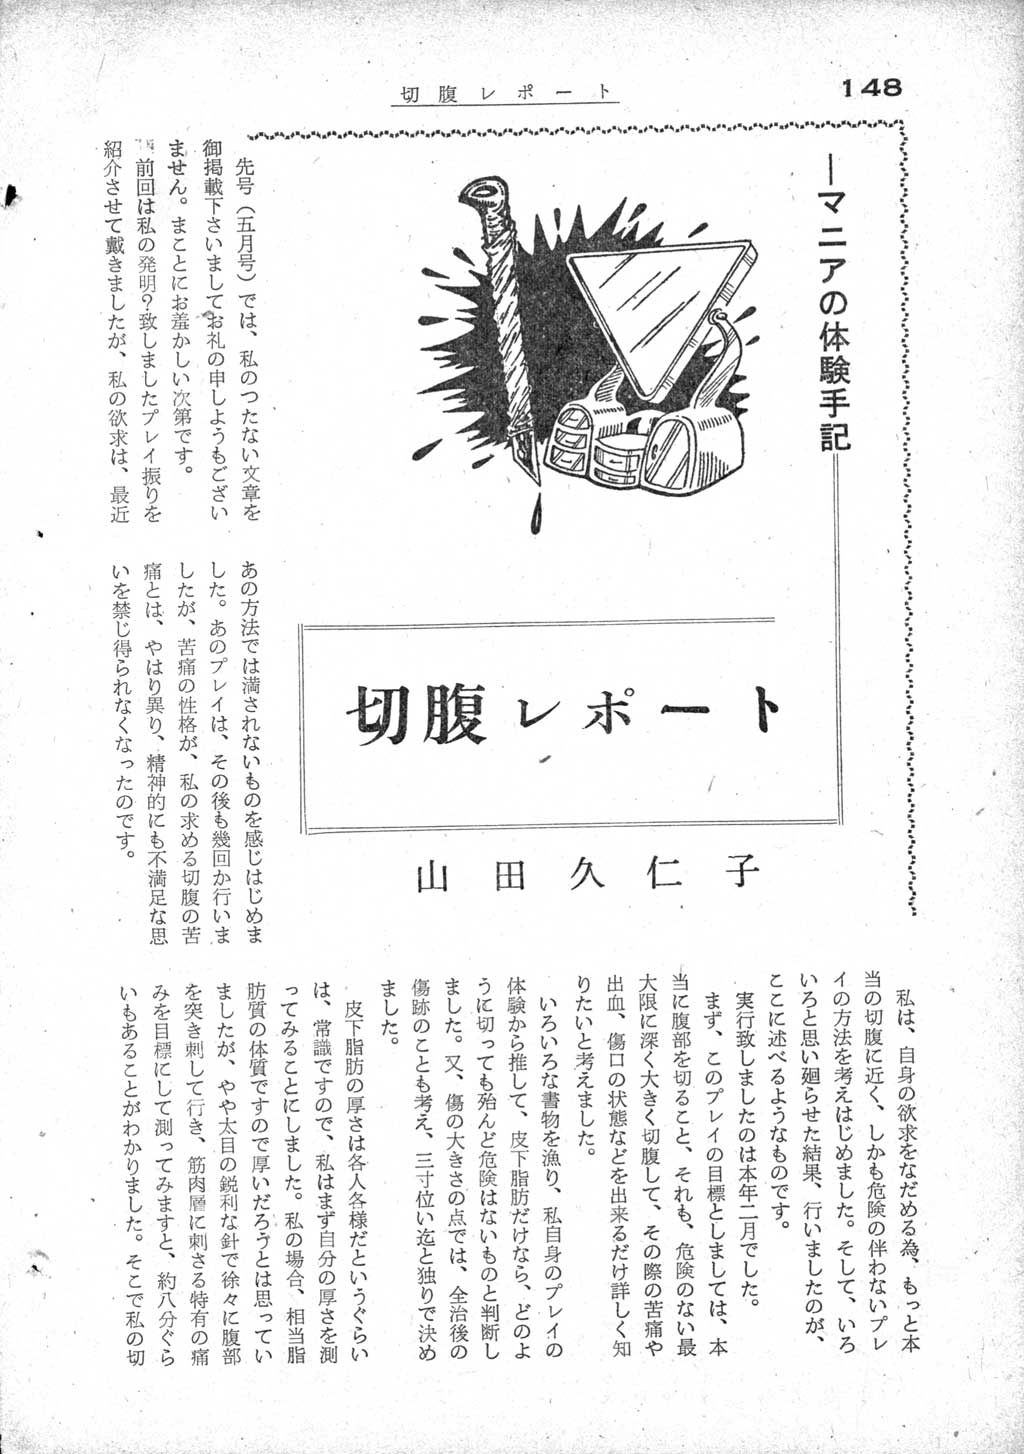 切腹レポート
148
―マニアの体験手記
切腹レポート
山田久仁子
先号（五月号）では、私のつたない文章を
御掲載下さいましてお礼の申しようもござい
ません。まことにお羞かしい次第です。
前回は私の発明？致しましたプレイ振りを
紹介させて戴きましたが、私の欲求は、最近
あの方法では満されないものを感じはじめま
した。あのプレイは、その後も幾回か行いま
したが、苦痛の性格が、私の求める切腹の苦
痛とは、やはり異り、精神的にも不満足な思
いを禁じ得られなくなったのです。
私は、自身の欲求をなだめる為、もっと本
当の切腹に近く、しかも危険の伴わないプレ
イの方法を考えはじめました。そして、いろ
いろと思い廻らせた結果、行いましたのが、
ここに述べるようなものです。
実行致しましたのは本年二月でした。
まず、このプレイの目標としましては、本
当に腹部を切ること、それも、危険のない最
大限に深く大きく切腹して、その際の苦痛や
出血、傷口の状態などを出来るだけ詳しく知
りたいと考えました。
いろいろな書物を漁り、私自身のプレイの
体験から推して、皮下脂肪だけなら、どのよ
うに切っても殆んど危険はないものと判断し
ました。又、傷の大きさの点では、全治後の
傷跡のことも考え、三寸位い迄と独りで決め
ました。
皮下脂肪の厚さは各人各様だというぐらい
は、常識ですので、私はまず自分の厚さを測
ってみることにしました。私の場合、相当脂
肪質の体質ですので厚いだろうとは思ってい
ましたが、やや太目の鋭利な針で徐々に腹部
を突き刺して行き、筋肉層に刺さる特有の痛
みを目標にして測ってみますと、約八分ぐら
いもあることがわかりました。そこで私の切